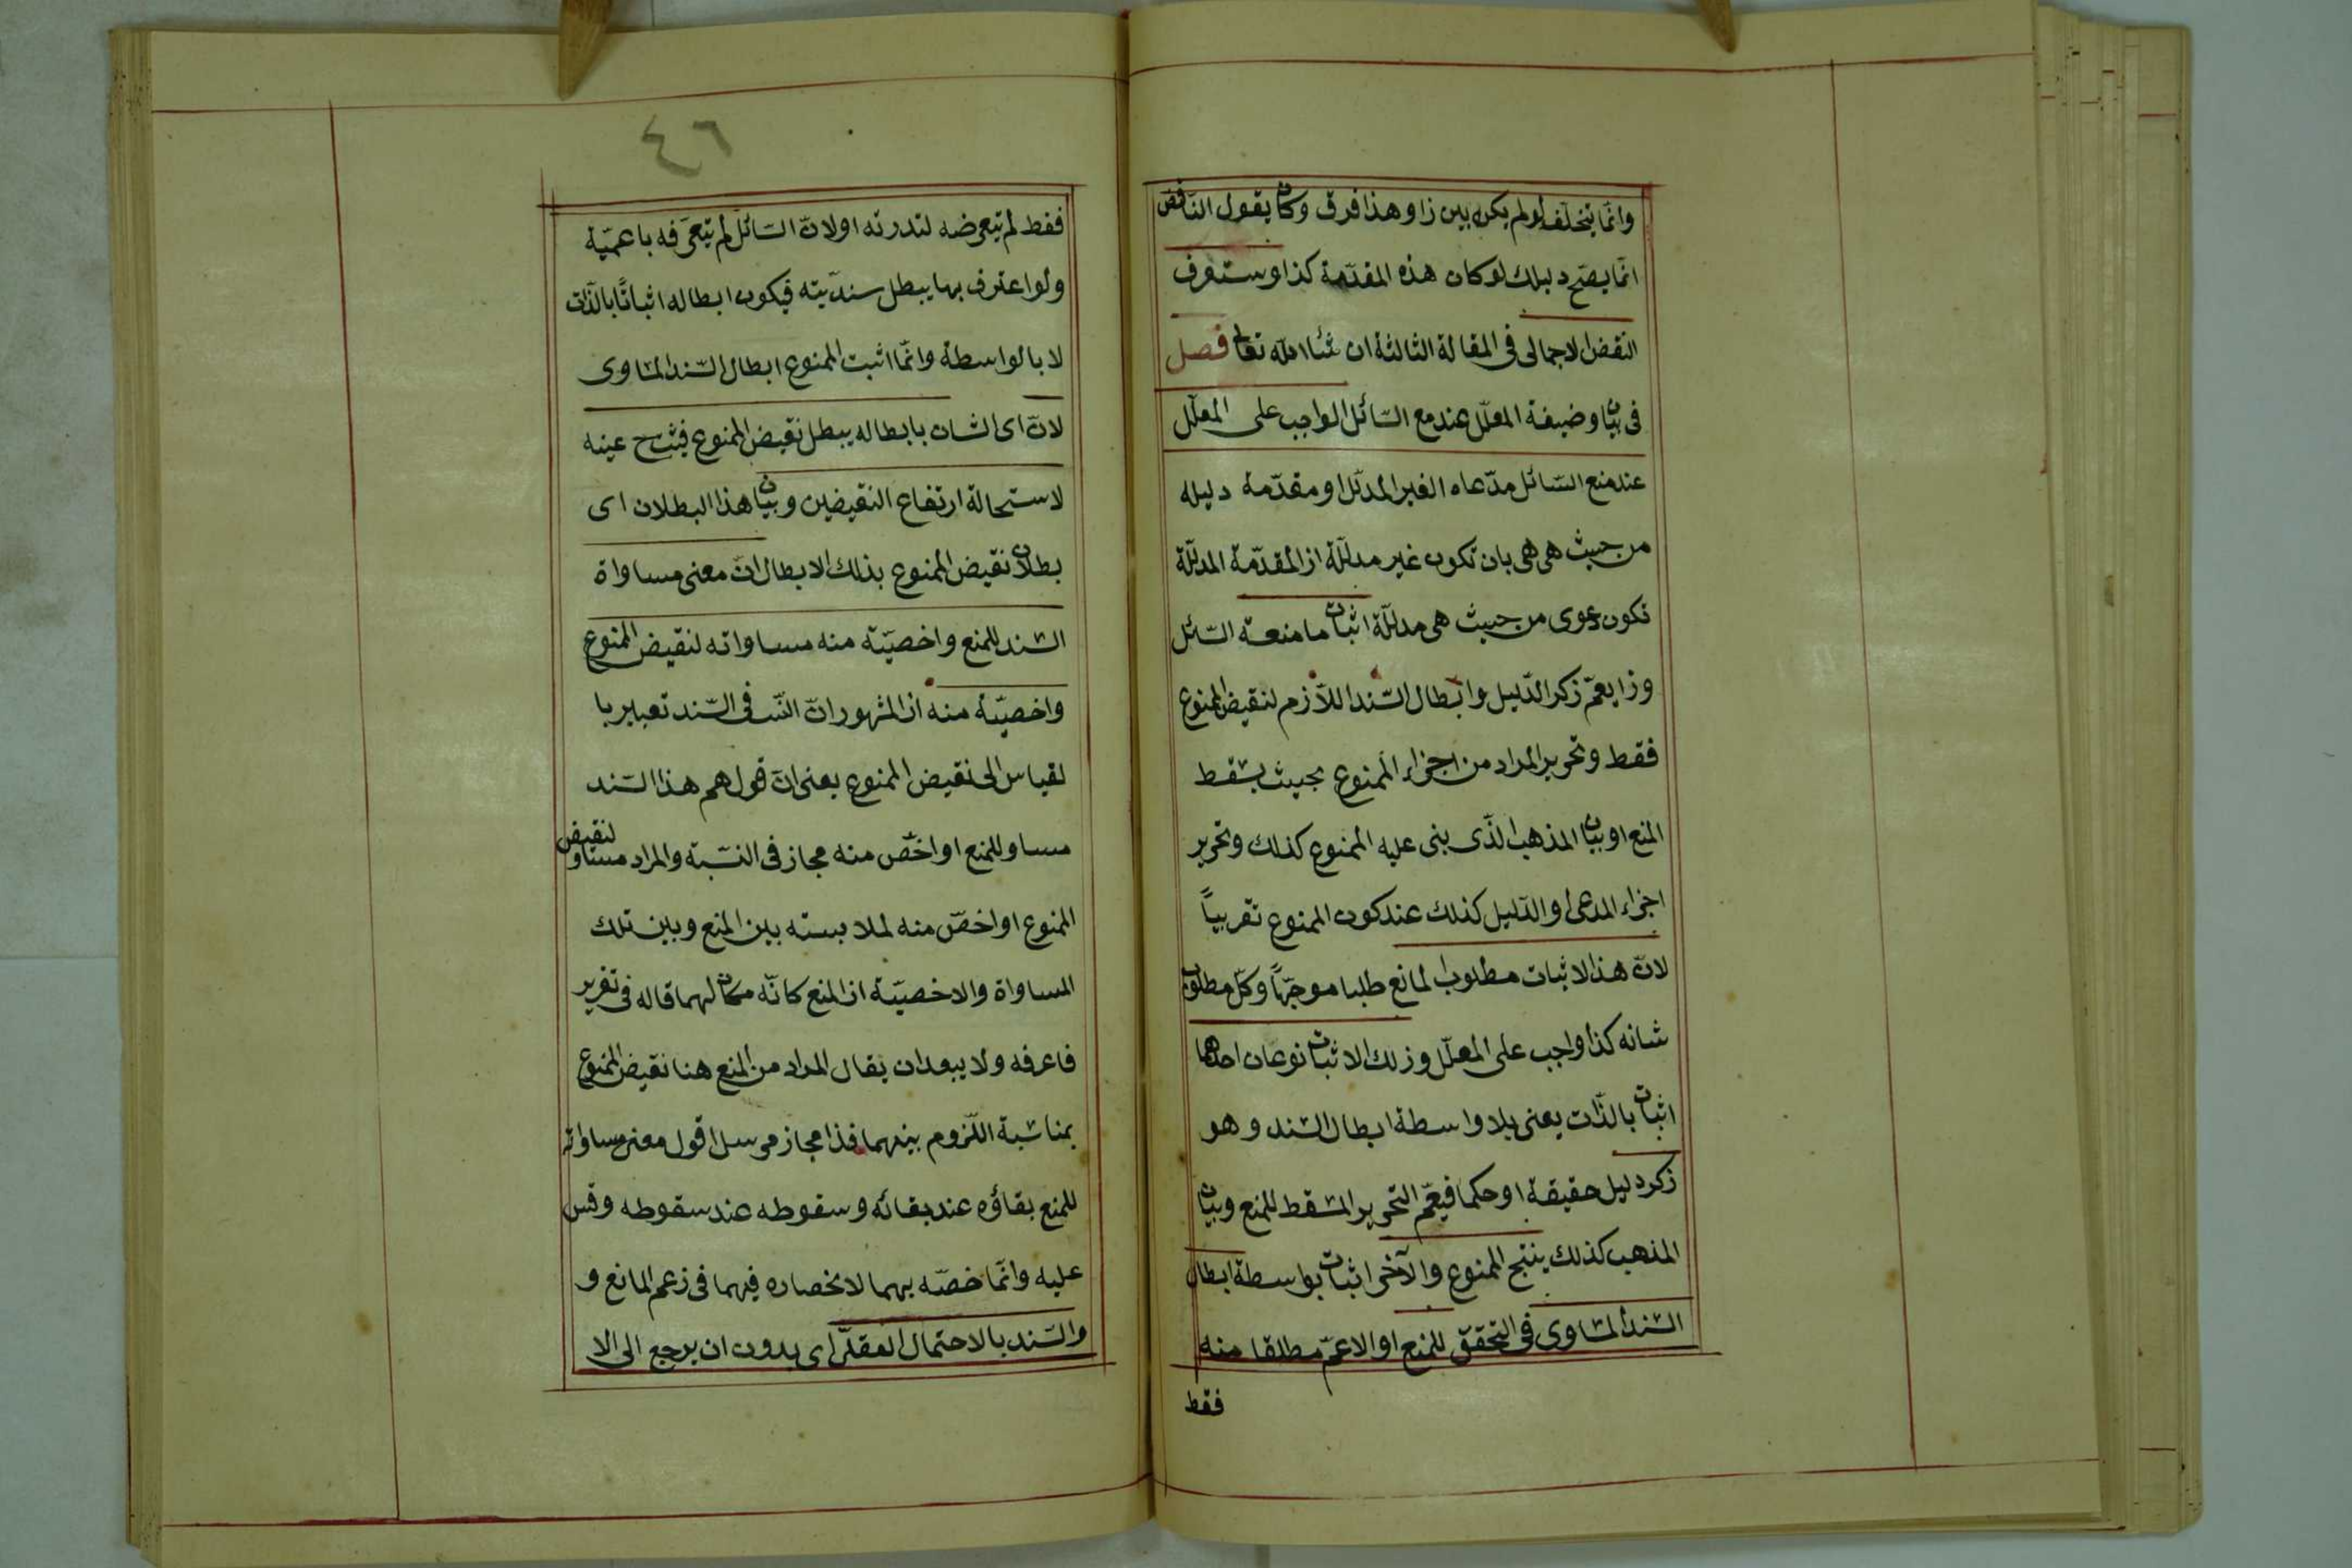 وانّما يتخلّف لو لم يكن بين زا وهذا فرق وكان يقول النّاقض
انّما يصحّ دليلك لو كان هذه المقدّمة كذا وستعرف
النقض الاجمالى فى المقالة الثالثة ان شاء الله تعالى فصل
فى بيان وضيفة المعلّل عند مع السّائل الواجب على المعلّل
عند منع السّائل مدّعاه الغير المدلّل او مقدّمة دليله
من حيث هى هى بان تكون غير مدلّلة از المقدّمة المدلّلة
تكون دعوى من حيث هى مدلّلة اثبات ما منعه السّائل
وزا يعمّ زكر الدّليل وابطال السّند اللّازم لنقيض الممنوع
فقط وتحرير المراد من اجزاء الممنوع بحيث يسقط
المنع او بيان المذهب الّذى بنى عليه الممنوع كذلك وتحرير
اجزاء المدعى او الدّليل كذلك عند كون الممنوع تقريباً
لانّ هذا الاثبات مطلوب المانع طلبا موجّهاً وكلّ مطلوب
شانه كذا واجب على المعلّل وزلك الاثبات نوعان احدهما
اثبات بالذّات يعنى بلا واسطة ابطال السّند وهو
زكر دليل حقيقة او حكما فيعمّ التحرير المسقط للمنع وبيان
المذهب كذلك ينتج الممنوع والآخر اثبات بواسطة ابطال
السّند المساوى فى التحقّق للمنع او الاعمّ مطلقا منه
فقط
٤٦
فقط لم يتعرضه لندرته او لانّ السّائل لم يتعرّفه باعميّة
ولو اعترف بها يبطل سنديّته فيكون ابطاله اثباتًا بالذّات
لا بالواسطة وانّما اثبت الممنوع ابطال السّند المساوى
لانّ اى الشان بابطاله يبطل نقيض الممنوع فيثبت ح عينه
لاستحالة ارتفاع النقيضين وبيان هذا البطلان اى
بطلان نقيض الممنوع بذلك الابطال انّ معنى مساواة
السّند للمنع واخصيّته منه مساواته لنقيض الممنوع
واخصيّة منه از المشهور انّ النّسب فى السّند تعبير با
لقياس الى نقيض الممنوع يعنى انّ قولهم هذا السّند
مساو للمنع او اخصّ منه مجاز فى النسّبة والمراد مساو لنقيض
الممنوع او اخصّ منه لملابسته بين المنع وبين تلك
المساواة والاخصيّة از المنع كانّه مكان لهما قاله فى تقرير
فاعرفه ولا يبعد ان يقال المراد من المنع هنا نقيض الممنوع
بمناسبة اللّزوم بينهما فذا مجاز مرسل اقول معنى مساواته
للمنع بقاؤه عند بقائه وسقوطه عند سقوطه وقس
عليه وانّما خصّه بهما لانحصاره فيهما فى زعم المانع و
والسّند بالاحتمال العقلّى اى بدون ان يرجع الى الا